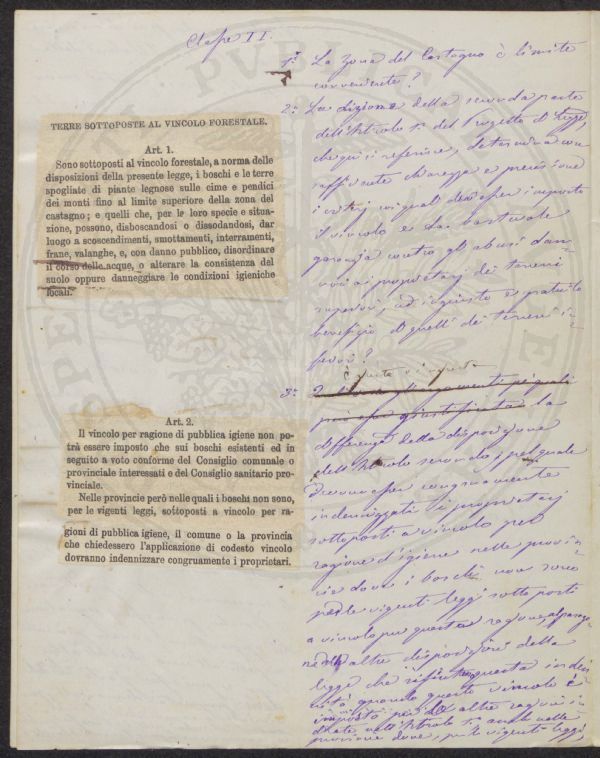 Classe II.
TERRE SOTTOPOSTE AL VINCOLO FORESTALE.
Art. 1.
Sono sottoposti al vincolo forestale, a norma delle
disposizioni della presente legge, i boschi e le terre
spogliate di piante legnose sulle cime e pendici
dei monti fino al limite superiore della zona del
castagno; e quelli che, per le loro specie e situa-
zione, possono, disboscandosi o dissodandosi, dar
luogo a scoscendimenti, smottamenti, interramenti,
frane, valanghe, e, con danno pubblico, disordinare
il corso delle acque, o alterare la consistenza del
suolo oppure danneggiare le condizioni igieniche
locali.
Art. 2.
Il vincolo per ragione di pubblica igiene non po-
trà essere imposto che sui boschi esistenti ed in
seguito a voto conforme del Consiglio comunale o
provinciale interessati e del Consiglio sanitario pro-
vinciale.
Nelle provincie però nelle quali i boschi non sono,
per le vigenti leggi, sottoposti a vincolo per ra-
gioni di pubblica igiene, il comune o la provincia
che chiedessero l'applicazione di codesto vincolo
dovranno indennizzare congruamente i proprietari.
1° La Zona del Castagno è limite
conveniente?
2° La dizione della seconda parte
dell'Articolo 1° del Progetto di Legge,
che qui si riferisce, determina con
sufficiente chiarezza e precisione
i criterj coi quali devesi imporre
il vincolo e dà bastevole
garanzia contro gli abusi dan-
nosi ai proprietarj dei terreni
superiori, ed ingiusto e gratuito
beneficio di quelli dei terreni in-
feriori?
3° la
differenza della disposizione
dell'Articolo secondo, pel quale
devono congruamente
indennizzati i proprietarj
sottoposti a vincolo per
ragione d'igiene nelle provin-
cie dove i boschi non sono
per le vigenti leggi sottoposti
a vincolo per questa ragione, al parago-
ne altre disposizioni della
legge che questa inden-
nità quando questo vincolo è
imposto per le altre ragioni in-
dicate nell'Articolo 1° anche nelle
provincie dove, per le vigenti leggi,